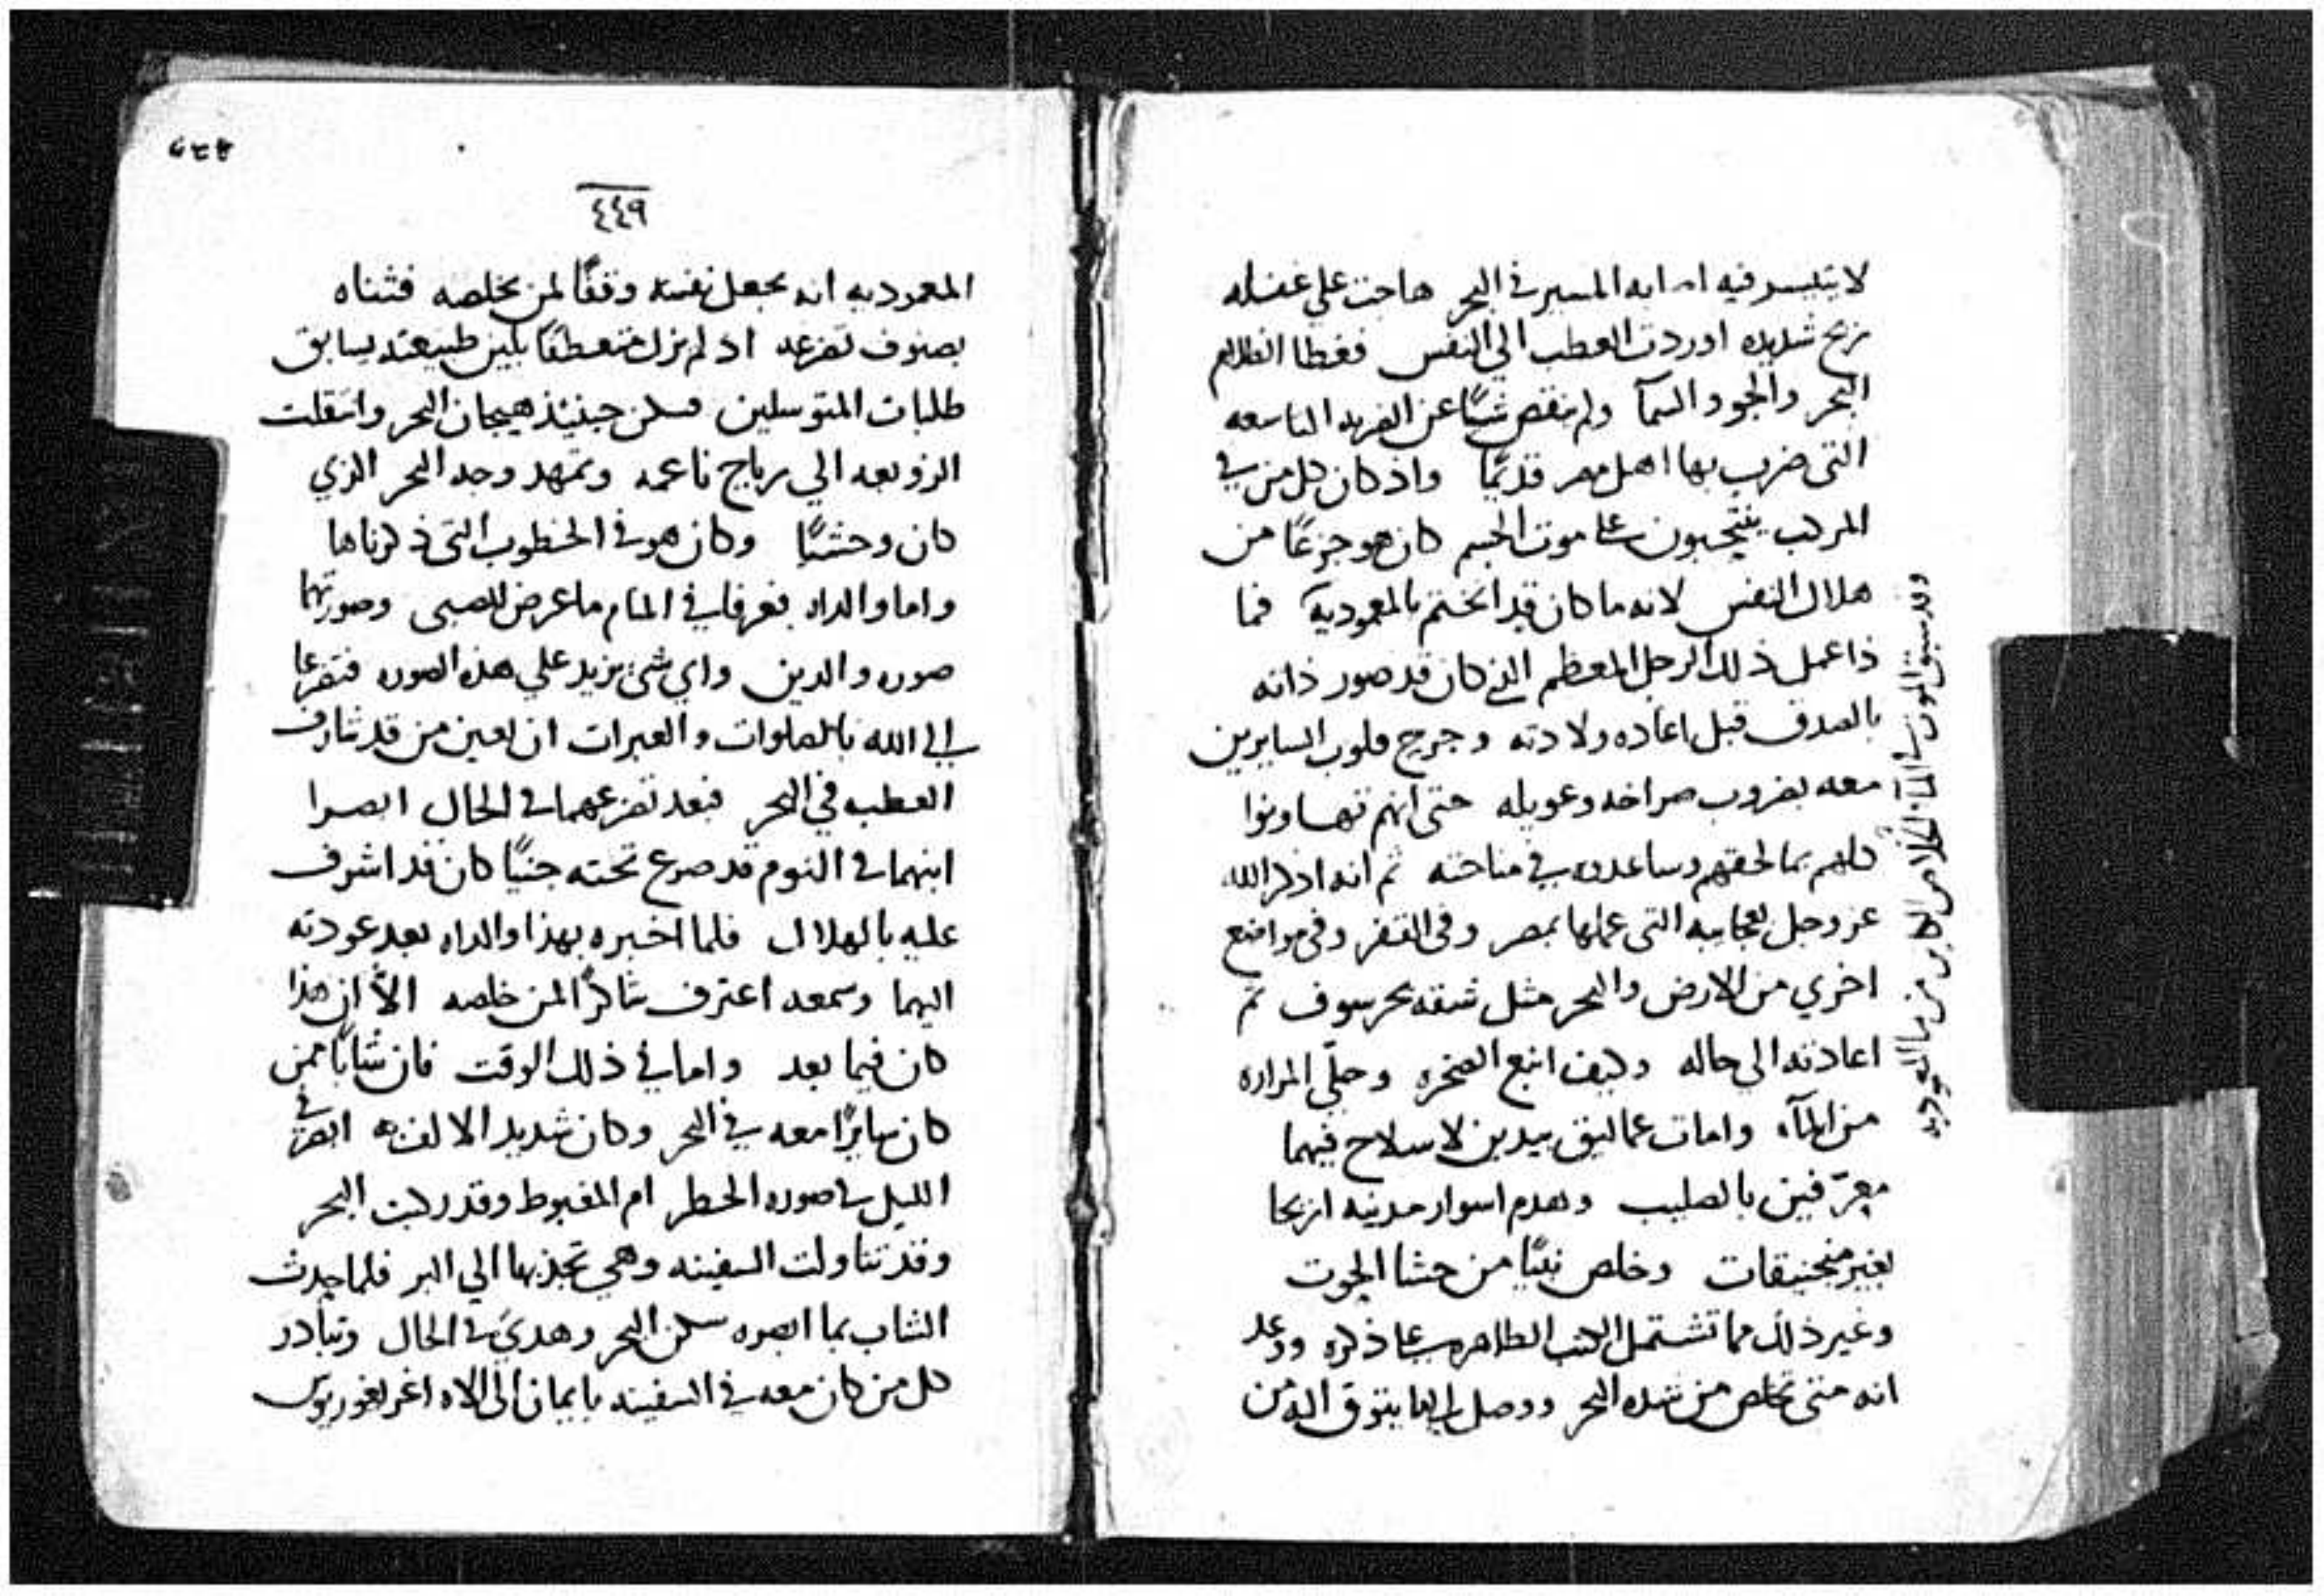 لا يتيسر فيه امانه المسير في البحر هاجت علي غفله
ريح شديده اوردت العطب الي النفس فغطا الظلام
البحر والجو والسمآ ولم ينقص شيًا عن الضربه التاسعه
التي ضرب بها اهل مصر قديمًا واذ كان كل من في
المركب ينتحبون علي موت الجسم كان هو جزعًا من
هلاك النفس لانه ما كان قد اختتم بالمعموديه فما
ذا عمل ذلك الرجل المعظم الذي كان قد صور ذاته
بالصدف قبل اعاده ولادته وجرح قلوب السايرين
معه بضروب صراخه وعويله حتى انهم تهاونوا
كلهم بما لحقهم وساعدوه في مناحته ثم انه اذكر الله
عز وجل بعجايبه التي عملها بمصر وفي القفر وفي مواضع
اخري من الارض والبحر مثل شقه بحر سوف ثم
اعادته الي حاله وكيف انبع الصخره وحلّي المراره
من المآء وامات عماليق بيدين لا سلاح فيهما
معرّفين بالصليب وهدم اسوار مدينه اريحا
بغير منجنيقات وخلص نبيًا من حشا الحوت
وغير ذلك مما تشتمل الكتب الطاهره علي ذكره ووعد
انه متى تخلص من شده البحر ووصل الي ما يتوق اليه من
وقد سبق الموت في المآء
٤٤٩
المعموديه انه يجعل نفسه وقفًا لمن يخلصه فثناه
بصنوف تضرعه اذ لم يزل متعطفًا بلين طبيعته يسابق
طلبات المتوسلين فسكن حينيذ هيجان البحر وانتقلت
الزوبعه الي رياح ناعمه وتمهد وجه البحر الذي
كان وحشيًا وكان هو في الخطوب التي ذكرناها
واما والداه فعرفا في المنام ما عرض للصبي وصورتهما
صوره والدين واي شي يزيد علي هذه الصوره فتضرعا
الي الله بالصلوات والعبرات ان يعين من قد شارف
العطب في البحر فبعد تضرعهما في الحال ابصرا
ابنهما في النوم قد صرع تحته جنيًا كان قد اشرف
عليه بالهلاك فلما اخبره بهذا والداه بعد عودته
اليهما وسمعه اعترف شاكرًا لمن خلصه الاّ ان هذا
كان فيما بعد واما في ذلك الوقت فان شابًا ممن
كان سايرًا معه في البحر وكان شديد الالفه ابصر في
الليل في صوره الخطر ام المغبوط وقد ركبت البحر
وقد تناولت السفينه وهي تجذبها الي البر فلما حدث
الشاب بما ابصره سكن البحر وهدي في الحال وتبادر
كل من كان معه في السفينه بايمان الي الاه اغريغوريوس